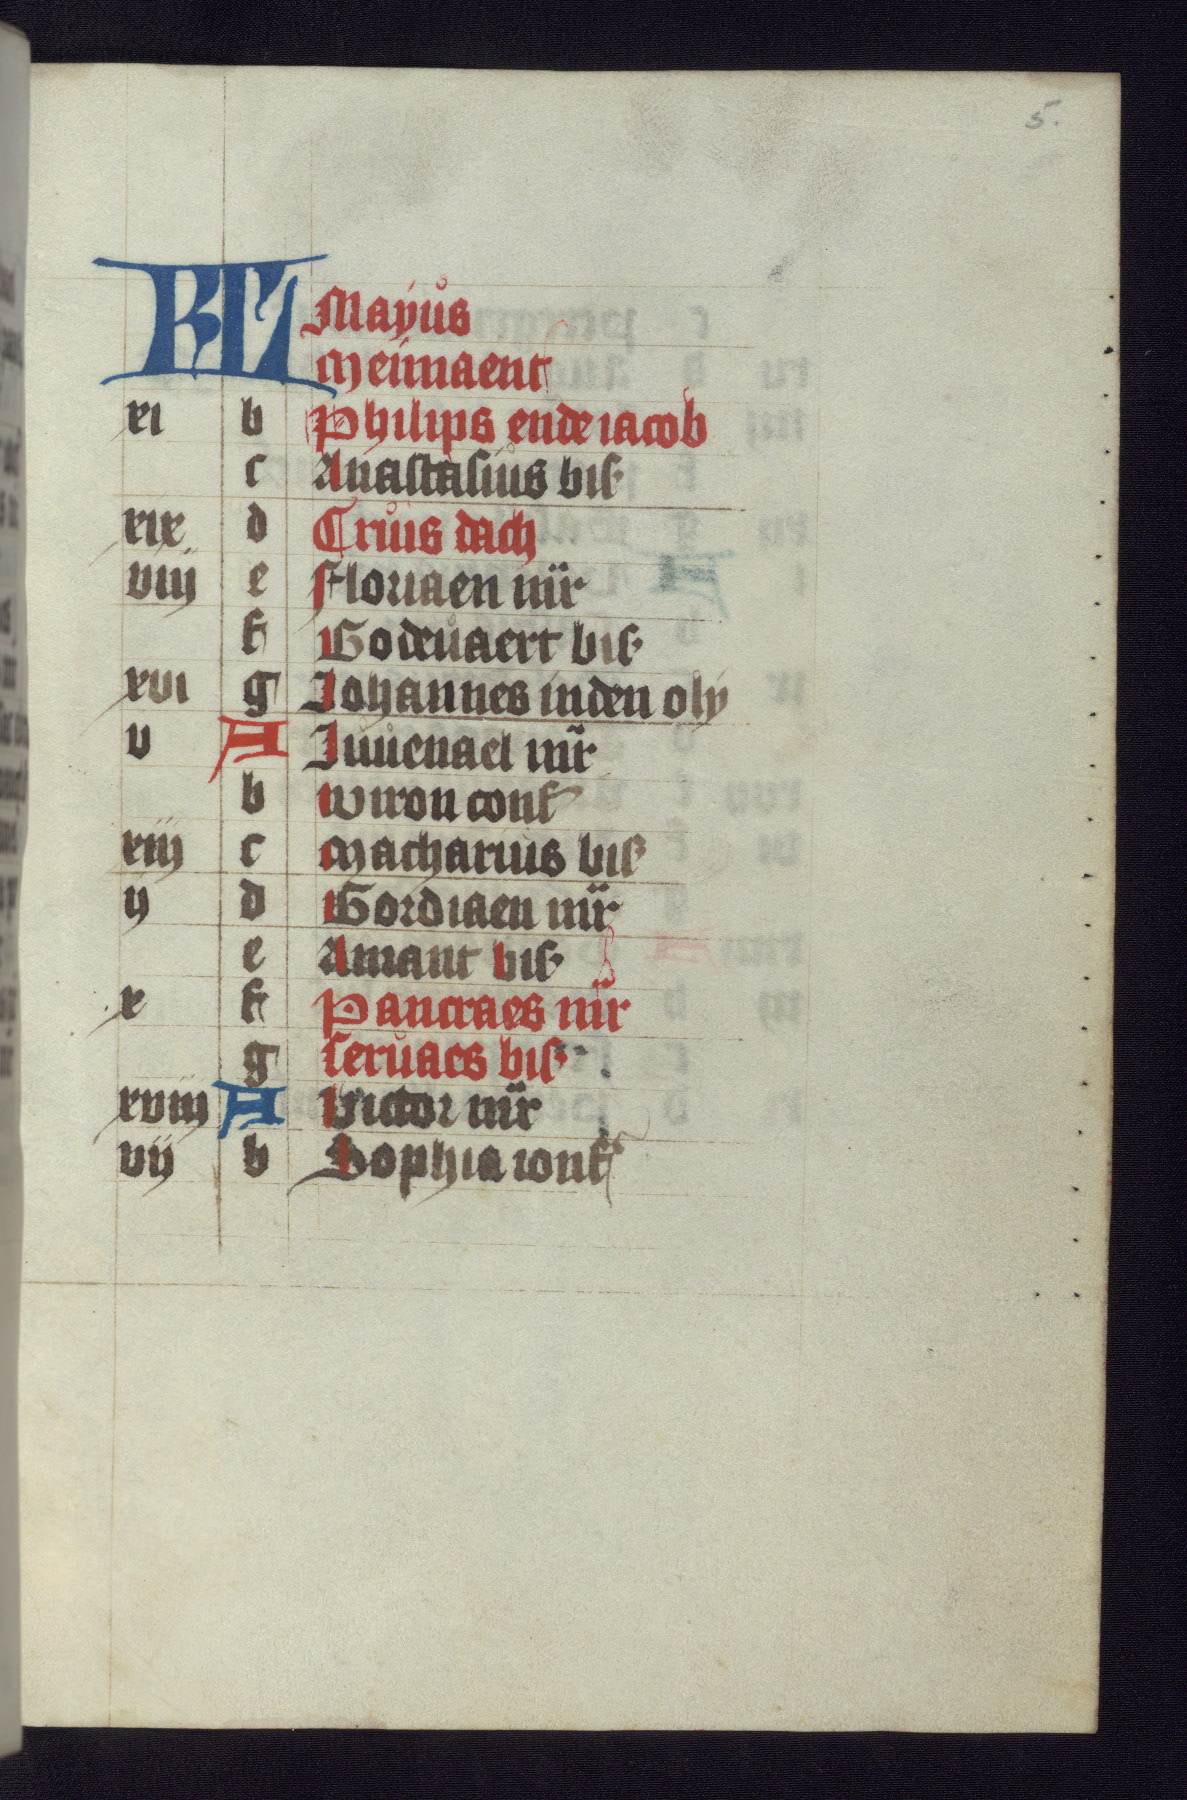 5.
KL Mayus
Meimaent
xi b Philips ende iacob
c Anastasius bis
xix d Cruis dach
viij e Floriaen mr
f Godeuaert bis
xvi g Johannes in den oly
v A Juuenael mr
b wiron conf
xiij c Macharius bis
ij d Gordiaen mr
e Amant bis
x f Pancraes mr
g seruaes bis
xviij A Victor mr
vij b Sophia ionf